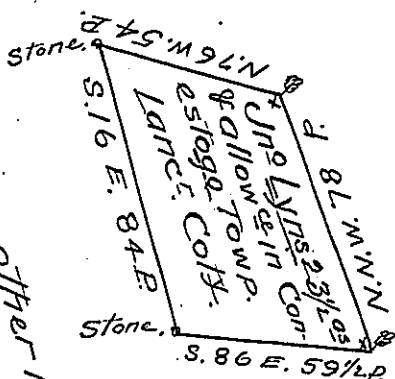 Stone.
N. 76 W. 54 P.
N.N.W. 78 P.
Jno Lyns 23½ as
& allowce in Con-
estoga Towp.
Lancr. Coty.
S. 16 E. 84 P.
Stone.
S. 86 E. 59½ P.
other